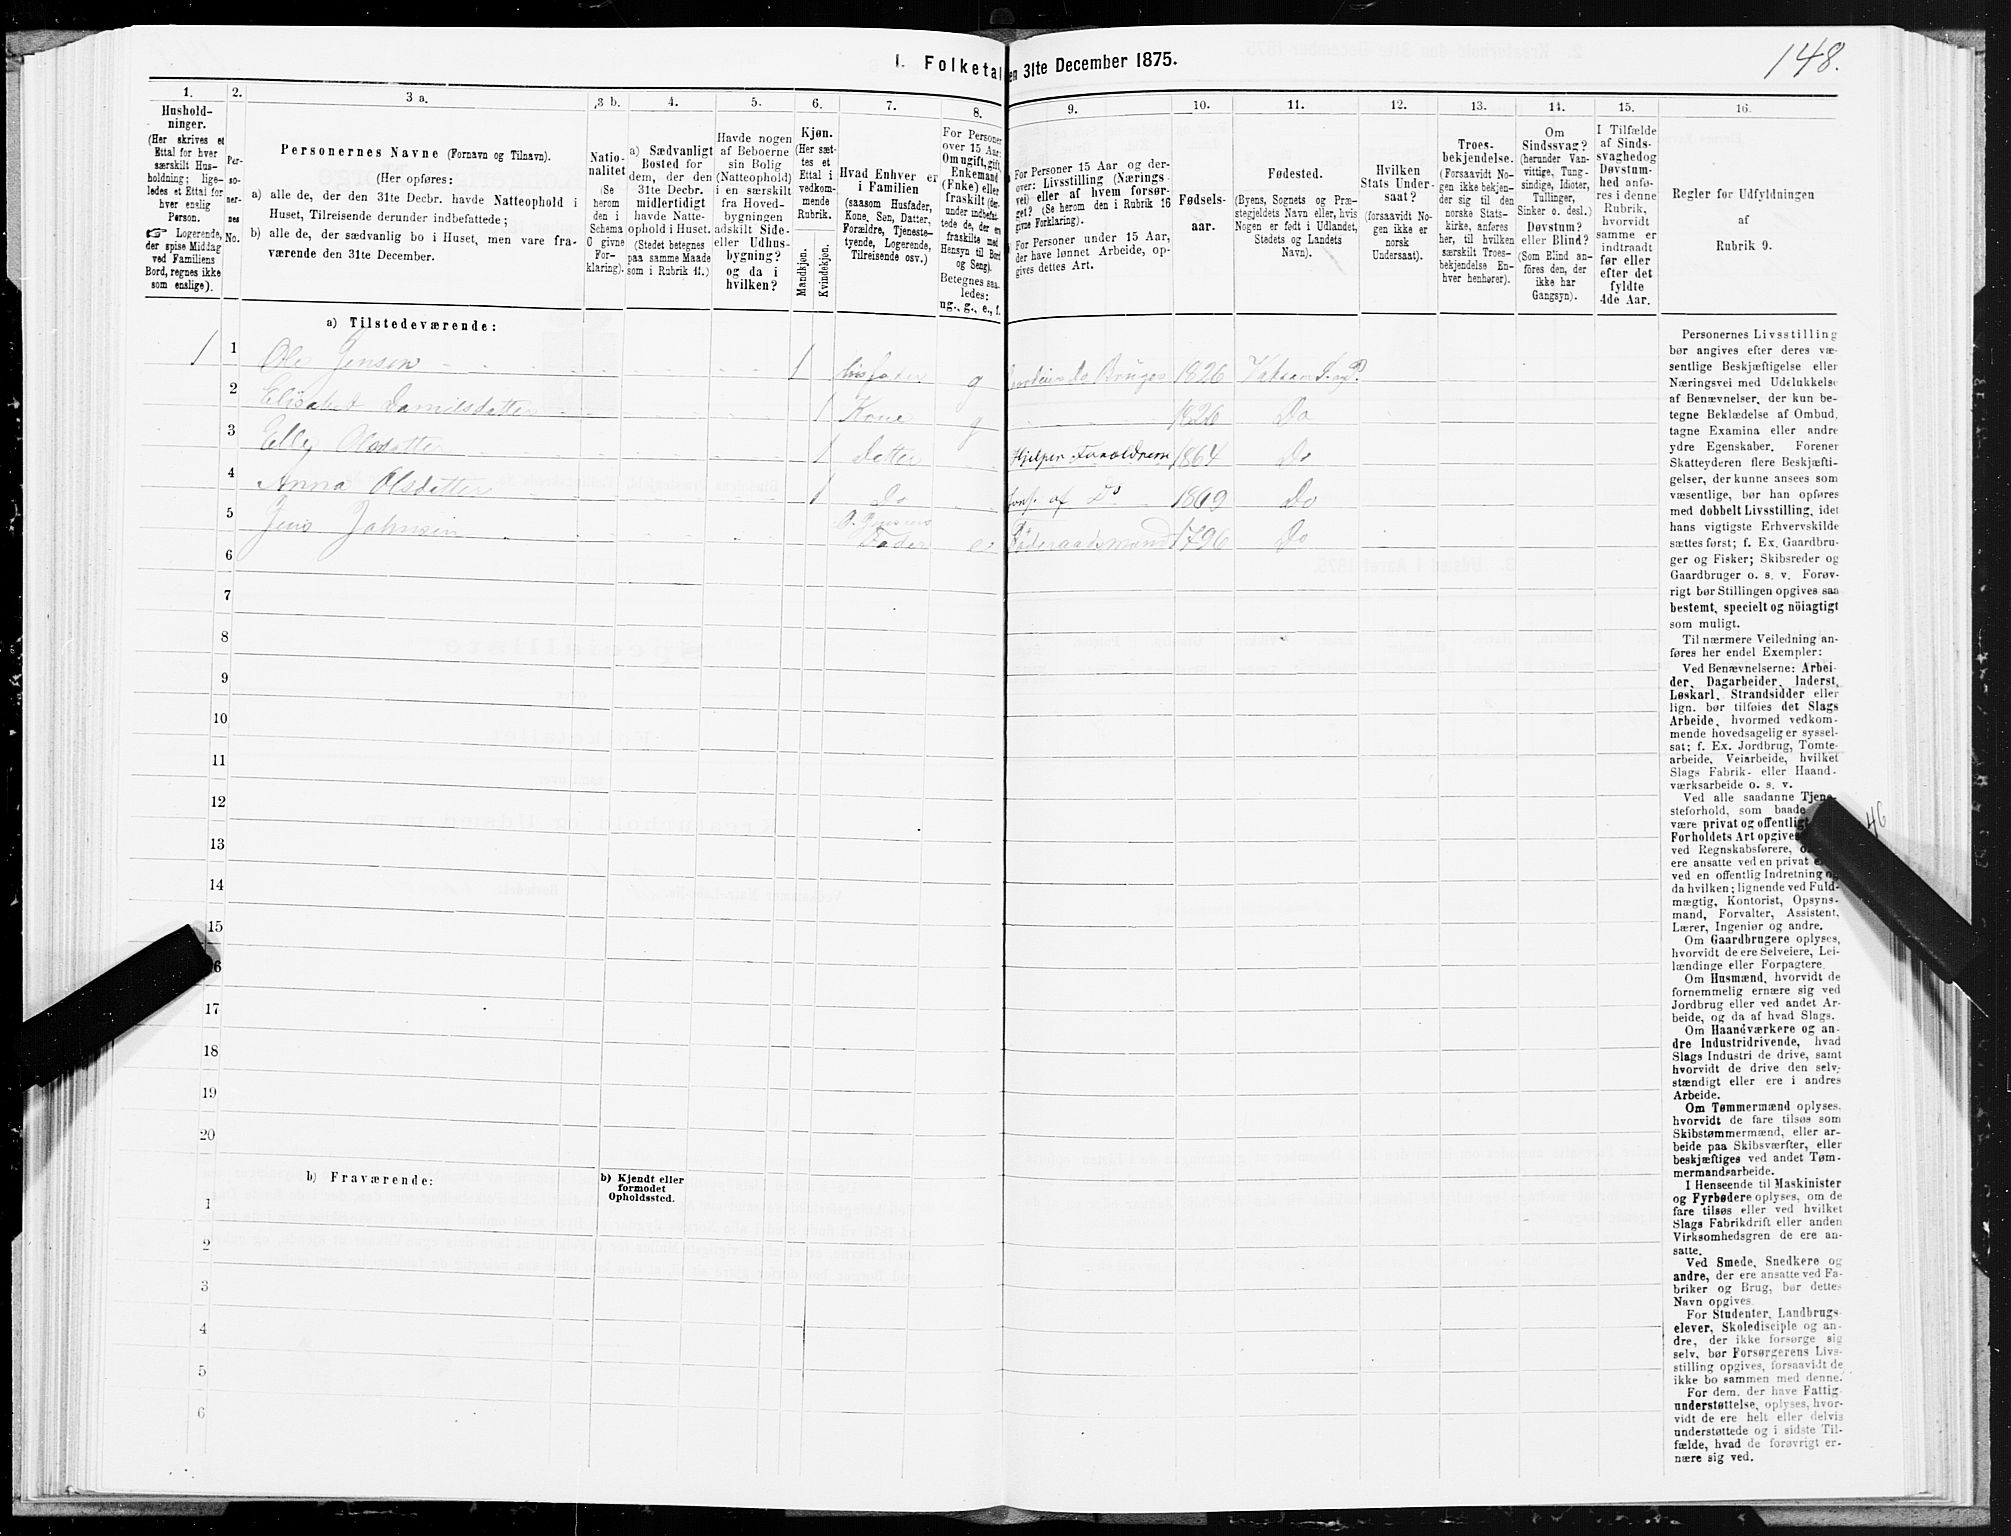 148.
1. Folketal
en 31te December 1875.
1.
Hushold-
ninger.
(Her skrives et
Ettal for hver
særskilt Hus-
holdning; lige-
ledes et Ettal for
hver enslig
Person.
☞ Logerende,
der spise Middag
ved Familiens
Bord, regnes ikke
som enslige).
2.
Per-
so-
ner-
nes
No.
3 a.
Personernes Navne (Fornavn og Tilnavn).
(Her opføres:
a) alle de, der den 31te Decbr. havde Natteophold i
Huset, Tilreisende derunder indbefattede;
b) alle de, der sædvanlig bo i Huset, men vare fra-
værende den 31te December.
3 b.
Natio-
nalitet
(Se
herom
den i
Schema
6 givne
For-
klaring).
4.
a) Sædvanligt
Bosted for
dem, der den
31te Decbr.
midlertidigt
havde Natte-
ophold i Huset.
(Stedet betegnes
paa samme Maade
som i Rubrik 11.)
5.
Havde nogen
af Beboerne
sin Bolig
(Natteophold)
i en særskilt
fra Hoved-
bygningen
adskilt Side-
eller Udhus-
bygning?
og da i
hvilken?
6.
Kjøn.
(Her sæt-
tes et
Ettal i
vedkom-
mende
Rubrik.
Mandkjøn.
Kvindekjøn.
7.
Hvad Enhver er
i Familien
(saasom Husfader,
Kone, Søn, Datter,
Forældre, Tjeneste-
tyende, Logerende,
Tilreisende osv.)
8.
For Personer
over 15 Aar:
Om ugift, gift,
Enkemand
(Enke) eller
fraskilt (der-
under indbefat-
tede de, der ere
fraskilte med
Hensyn til Bord
og Seng).
Betegnes saa-
ledes:
ug., g., e., f.
9.
For Personer 15 Aar og der-
over: Livsstilling (Nærings-
vei) eller af hvem forsør-
get? (Se herom den i Rubrik 16
givne Forklaring).
For Personer under 15 Aar,
der have lønnet Arbeide, op-
gives dettes Art.
10.
Fødsels-
aar.
11.
Fødested.
(Byens, Sognets og Præ-
stegjeldets Navn eller, hvis
Nogen er født i Udlandet,
Stedets og Landets
Navn).
12.
Hvilken
Stats Under-
saat?
(forsaavidt No-
gen ikke er
norsk
Undersaat).
13.
Troes-
bekjendelse.
(Forsaavidt No-
gen ikke bekjen-
der sig til den
norske Stats-
kirke, anføres
her, til hvilken
særskilt Troes-
bekjendelse En-
hver henhører).
14.
Om
Sindssvag?
(herunder Van-
vittige, Tung-
sindige, Idioter,
Tullinger,
Sinker o. desl.)
Døvstum?
eller Blind?
(Som Blind an-
føres den, der
ikke har
Gangsyn).
15.
I Tilfælde
af Sinds-
svaghed og
Døvstum-
hed anfø-
res i denne
Rubrik,
hvorvidt
samme er
indtraadt
før eller
efter det
fyldte
4de Aar.
16.
Regler for Udfyldningen
af
Rubrik 9.
a) Tilstedeværende:
1 1 Ole Jensen 1 Husfader g Gardeier Do Bruger 1826
2 Elisabet Danielsdatter 1 Kone g 1826 Do
3 Olsdatter 1 Datter Hjelper Forældrene 1864 Do
4 Anna Olsdatter 1 Do Fors. af Do 1869 Do
5 Jens Johnsen Fader e Føderaadsmand 1796 Do
6
7
8
9
10
11
12
13
14
15
6
17
18
19
20
b) Fraværende:
b) Kjendt eller
formodet
Opholdssted.
1
2
3
4
5
6
Personernes Livsstilling
bør angives efter deres væ-
sentlige Beskjæftigelse eller
Næringsvei med Udelukkelse
af Benævnelser, der kun be-
tegne Beklædelse af Ombud,
tagne Examina eller andre
ydre Egenskaber. Forener
Skatteyderen flere Beskjæfti-
gelser, der kunne ansees som
væsentlige, bør han opføres
med dobbelt Livsstilling, idet
hans vigtigste Erhvervskilde
sættes først; f. Ex. Gaardbru-
ger og Fisker; Skibsreder og
Gaardbruger o. s. v. Forøv-
rigt bør Stillingen opgives saa
bestemt, specielt og nöiagtigt
som muligt.
Til nærmere Veiledning an-
føres her endel Exempler:
Ved Benævnelserne: Arbei-
der, Dagarbeider, Inderst,
Løskarl, Strandsidder eller
lign. bør tilføies det Slags
Arbeide, hvormed vedkom-
mende hovedsagelig er syssel-
sat; f. Ex. Jordbrug, Tomte-
arbeide, Veiarbeide, hvilket
Slags Fabrik- eller Haand-
værksarbeide o. s. v.
Ved alle saadanne Tjene-
steforhold, som baade
være privat og offentligt
Forholdets Art opgives
ved Regnskabsførere,
ere ansatte ved en privat
ved en offentlig Indretning og
da hvilken; lignende ved Fuld-
mægtig, Kontorist, Opsyns-
mand, Forvalter, Assistent,
Lærer, Ingeniør og andre.
Om Gaardbrugere oplyses,
hvorvidt de ere Selveiere, Lei-
lændinge eller Forpagtere.
Om Husmænd, hvorvidt de
fornemmelig ernære sig ved
Jordbrug eller ved andet Ar-
beide, og da af hvad Slags.
Om Haandværkere og an-
dre Industridrivende, hvad
Slags Industri de drive, samt
hvorvidt de drive den selv-
stændigt eller ere i andres
Arbeide.
Om Tømmermænd oplyses,
hvorvidt de fare tilsøs som
Skibstømmermænd, eller ar-
beide paa Skibsværfter, eller
beskjæftiges ved andet Tøm-
mermandsarbeide.
I Henseende til Maskinister
og Fyrbødere oplyses, om de
fare tilsøs eller ved hvilket
Slags Fabrikdrift eller anden
Virksomhedsgren de ere an-
satte.
Ved Smede, Snedkere og
andre, der ere ansatte ved Fa-
briker og Brug, bør dettes
Navn opgives.
For Studenter, Landbrugs-
elever, Skoledisciple og an-
dre, der ikke forsørge sig
selv, bør Forsørgerens Livs-
stilling opgives, forsaavidt de
ikke bo sammen med denne.
For dem, der have Fattig-
understøttelse, oplyses, hvor-
vidt de ere helt eller delvis
understøttede og i sidste Til-
fælde, hvad de forøvrigt er-
nære sig ved.
46